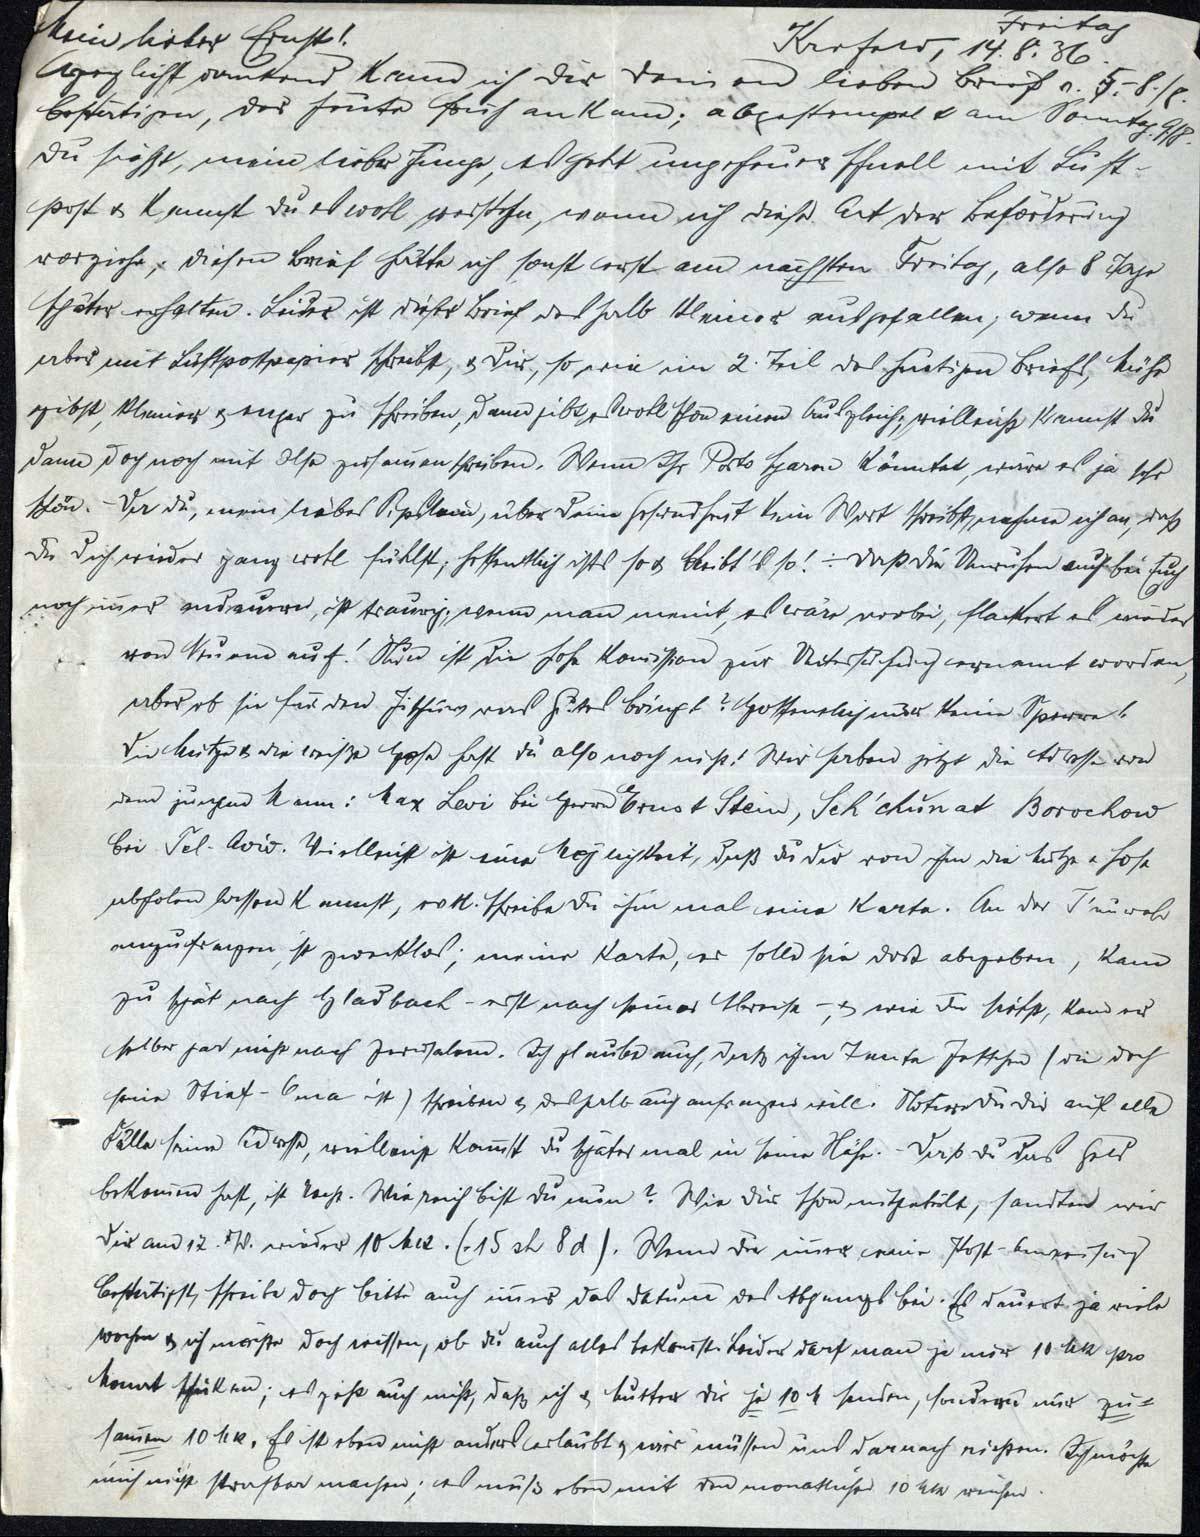 Mein lieber Ernst!
Krefeld, Freitag 14.8.36.
Herzlichst dankend kann ich Dir Deinen lieben Brief v. 5.-8./8.
bestätigen, der heute früh ankam; abgestempelt am Sonntag 9/8.
Du siehst, mein lieber Junge, es geht ungeheuer schnell mit Luft-
post & kannst Du es wohl verstehn, wenn ich diese Art der Beförderung
vorziehe; diesen Brief hätte ich sonst erst am nächsten Freitag, also 8 Tage
später erhalten. Leider ist dieser Brief deshalb kleiner ausgefallen; wenn Du
aber mit Luftpostpapier schreibst, & Dir, so wie im 2. Teil des heutigen Briefs, Mühe
gibst, kleiner & enger zu schreiben, dann gibt es wohl schon einen Ausgleich; vielleicht kannst Du
dann doch noch mit Ilse zusammen schreiben. Wenn Ihr Porto sparen könntet, wäre es ja sehr
schön. - Da Du, mein liebes, über Deine Gesundheit kein Wort schreibst, nehme ich an, daß
Du Dich wieder ganz wohl fühlst; hoffentlich ists so & bleibt's so! - Daß die Unruhen auch bei Euch
noch immer andauern, ist traurig; wenn man meint, es wäre vorbei, flackert es wieder
von Neuem auf! Nun ist die hohe Komission zur Untersuchung ernannt worden,
aber ob sie für den Jischuw was Gutes bringt? Hoffentlich nur keine Sperre!
Die Mütze & die weiße Hose hast Du also noch nicht! Wir haben jetzt die Adresse von
dem jungen Mann: Max Levi bei Herrn Ernst Stein, Sch'chunat Borochow
bei Tel-Aviv. Vielleicht ist eine Möglichkeit, daß Du Dir von ihm die Mütze & Hose
abholen lassen kannst, evtl. schreibe Du ihm mal eine Karte. An der
anzufragen, ist zwecklos; meine Karte, er solle sie dort abgeben, kam
zu spät nach Gladbach - erst nach seiner Abreise -, & wie Du siehst, kam er
selber gar nicht nach Jerusalem. Ich glaube auch, daß ihm Tante Jettchen (die doch
seine Stief-Oma ist) schreiben & deshalb auch anfragen will. Notiere Du Dir auf alle
Fälle seine Adresse, vielleicht kommst Du später mal in seine Nähe. - Daß Du das Geld
bekommen hast, ist recht. Wie reich bist Du nun? Wie Dir schon mitgeteilt, sandten wir
Dir am 12. ds. wieder 10 Mk. (-15 sh 8 d). Wenn Du immer eine Post-Anweisung
bestätigst, schreibe doch bitte auch immer das Datum des Abgangs bei. Es dauert ja viele
Wochen & ich möchte doch wissen, ob Du auch alles bekommst. Leider darf man ja nur 10 Mk pro
Monat schicken; es geht auch nicht, daß ich & Mutter Dir je 10 M senden, sondern nur zu-
sammen 10 Mk. Es ist eben nicht anders erlaubt & wir müssen uns darnach richten. Ich möchte
mich nicht strafbar machen; es muß eben mit den monatlichen 10 Mk reichen.